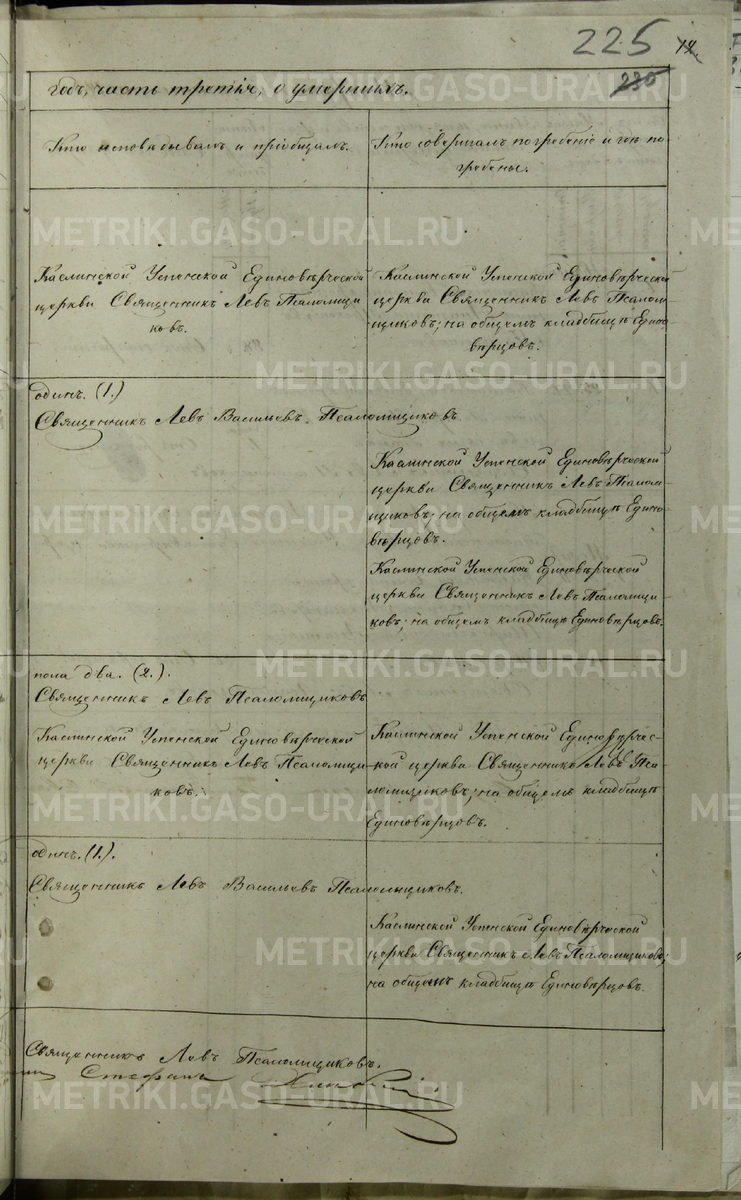 225
236
годъ, часть третія, о умершихъ.
Кто исповѣдывалъ и пріобщалъ.
Кто совершалъ погребеніе и гдѣ по-
гребены.
Каслинской Успенской Единовѣрческой
церкви Священникъ Левъ Псаломщи
ковъ.
Каслинской Успенской Единовѣрческой
церкви Священникъ Левъ Псалом-
щиковъ; на общемъ кладбищѣ Едино-
вѣрцовъ.
одинъ. (1.)
Священникъ Левъ Васильевъ Псаломщиковъ
Каслинской Успенской Единовѣрческой
церкви Священникъ Левъ Псалом-
щиковъ; на общемъ кладбищѣ Едино-
вѣрцовъ.
Каслинской Успенской Единовѣрческой
церкви Священникъ Левъ Псаломщи-
ковъ; на общемъ кладбищѣ Единовѣрцовъ.
пола два. (2.).
Священникъ Левъ Псаломщиковъ
Каслинской Успенской Единовѣрческой
церкви Священникъ Левъ Псаломщи-
ковъ.
Каслинской Успенской Единовѣрчес-
кой церкви Священникъ Левъ Пса-
ломщиковъ; на общемъ кладбищѣ
Единовѣрцовъ.
одинъ. (1.).
Священникъ Левъ Васильевъ Псаломщиковъ.
Каслинской Успенской Единовѣрческой
церкви Священникъ Левъ Псаломщиковъ;
на общемъ кладбищѣ Единовѣрцовъ.
Священникъ Левъ Псаломщиковъ.
Стефанъ
METRIKI.GASO-URAL.RU
METRIKI.GASO-URAL.RU
METRIKI.GASO-URAL.RU
METRIKI.GASO-URAL.RU
METRIKI.GASO-URAL.RU
METRIKI.GASO-URAL.RU
METRIKI.GASO-URAL.RU
METRIKI.GASO-URAL.RU